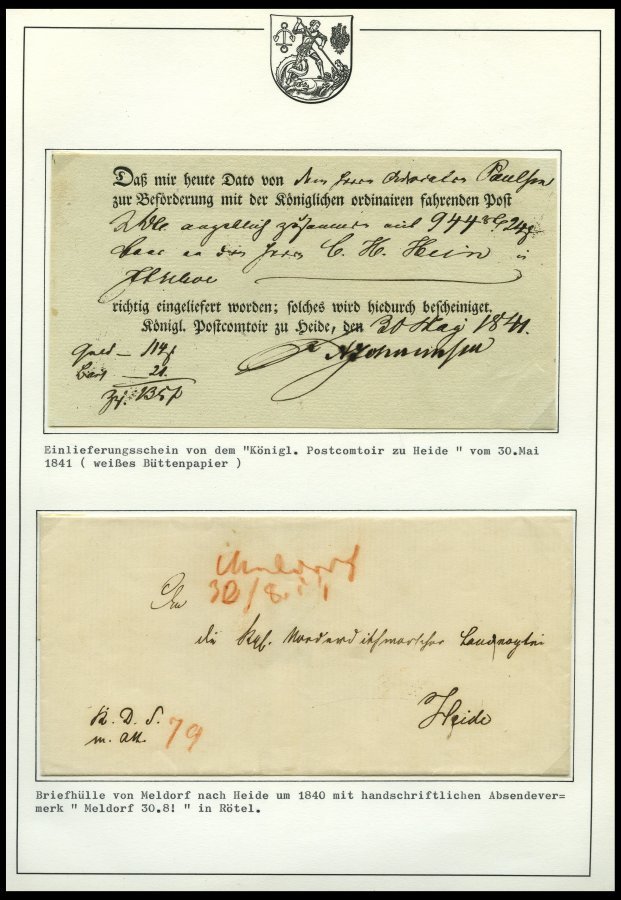 Daß mir heute Dato von dem Herrn Advocaten Paulsen
zur Beförderung mit der Königlichen ordinairen fahrenden Post
angeblich zusammen mit 944
baar an den Herrn C. H. Hein in
Itzehoe
richtig eingeliefert worden; solches wird hiedurch bescheiniget.
Königl. Postcomtoir zu Heide, den 30 May 1841.
114
21
135
Einlieferungsschein von dem "Königl. Postcomtoir zu Heide " vom 30.Mai
1841 ( weißes Büttenpapier )
Meldorf
30/8.
An
die Kgl. Norderdithmarscher Landvogtei
Heide
K. D. S.
m. Att. 79
Briefhülle von Meldorf nach Heide um 1840 mit handschriftlichen Absendever=
merk " Meldorf 30.8! " in Rötel.